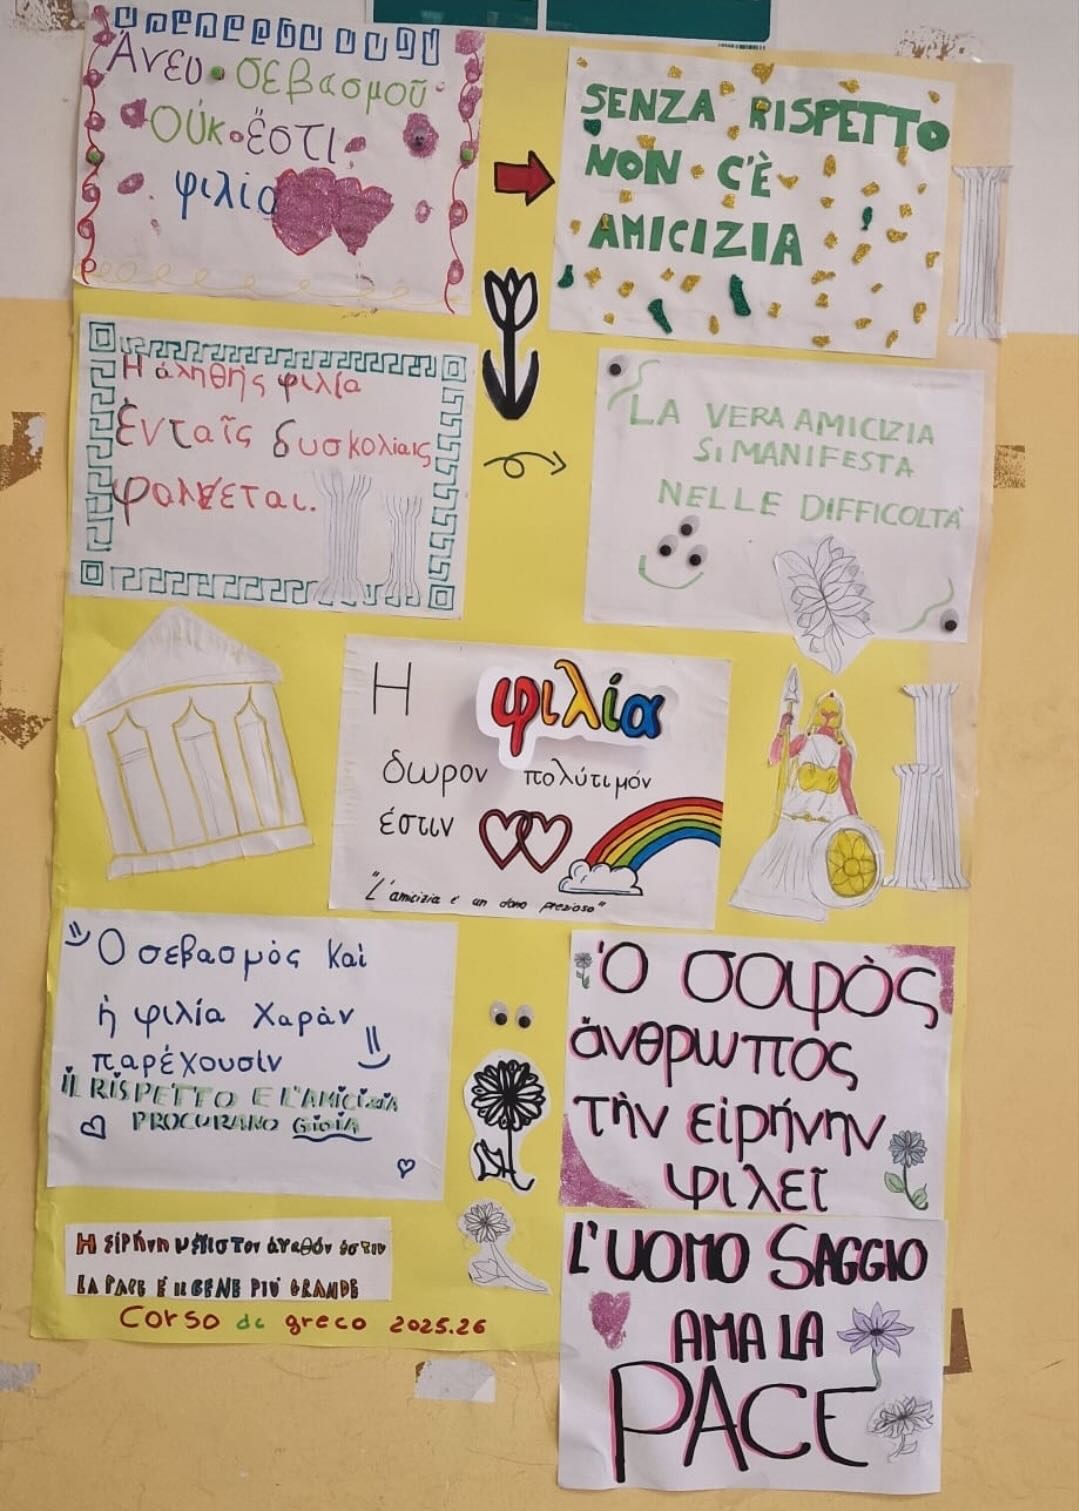 Ἄνευ σεβασμοῦ
Οὐκ ἔστι
φιλία
SENZA RISPETTO
NON C'È
AMICIZIA
Η ἀληθής φιλία
ἐν ταῖς δυσκολίαις
φαίνεται.
LA VERA AMICIZIA
Si MANIFESTA
NELLE DIFFICOLTÀ
Η φιλία
δωρον πολύτιμόν
ἐστιν
"L'amicizia è un dono prezioso"
Ὁ σεβασμὸς καὶ
ἡ φιλία χαρὰν
παρέχουσίν
IL RISPETTO E L'AMICIZIA
PROCURANO GIOIA
Ὁ σοφὸς
ἄνθρωπος
τὴν εἰρήνην
φιλεῖ
L'UOMO SAGGIO
AMA LA
PACE
Η εἰρήνη μέγιστον ἀγαθόν ἐστιν
LA PACE È IL BENE PIÙ GRANDE
Corso di greco 2025.26